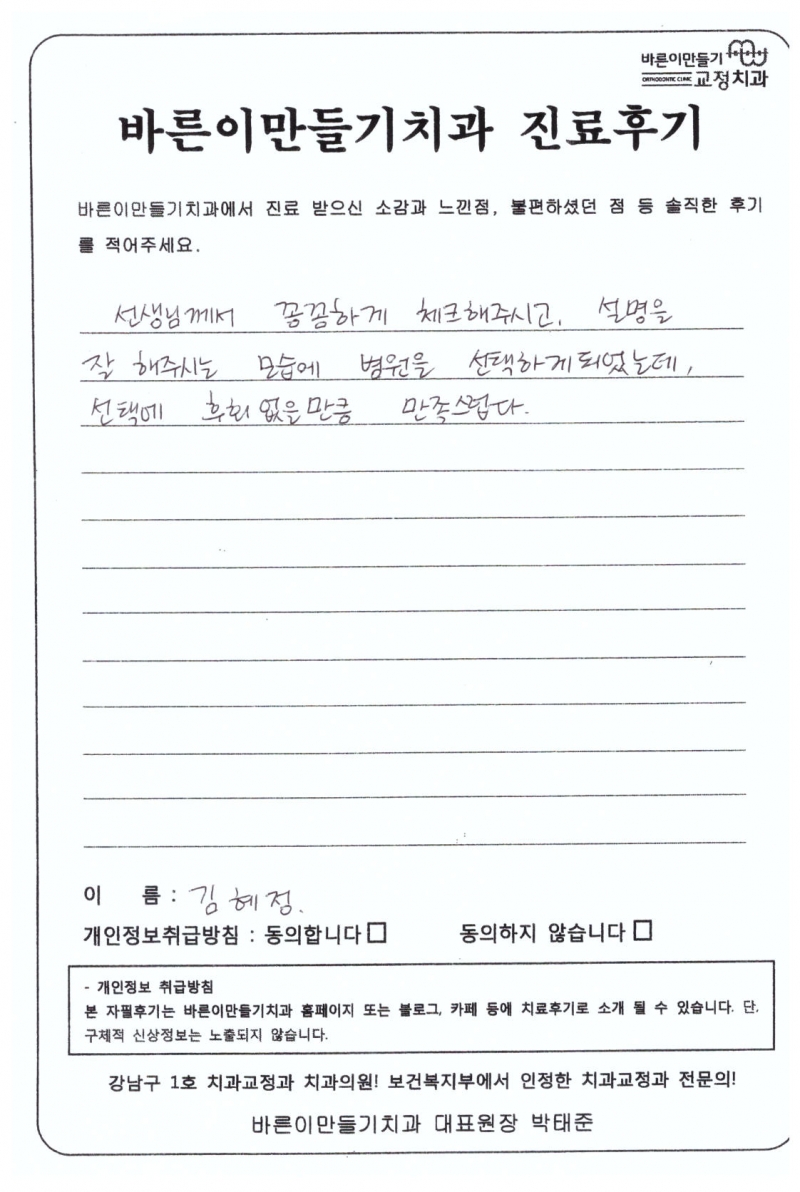 바른이만들기
ORTHODONTIC CLINIC 교정치과
바른이만들기치과 진료후기
바른이만들기치과에서 진료 받으신 소감과 느낀점, 불편하셨던 점 등 솔직한 후기
를 적어주세요.
선생님께서 꼼꼼하게 체크해주시고, 설명을
잘 해주시는 모습에 병원을 선택하게되었는데,
선택에 후회 없을만큼 만족스럽다.
이 름 : 김혜정.
개인정보취급방침 : 동의합니다 □ 동의하지 않습니다 □
- 개인정보 취급방침
본 자필후기는 바른이만들기치과 홈페이지 또는 블로그, 카페 등에 치료후기로 소개 될 수 있습니다. 단,
구체적 신상정보는 노출되지 않습니다.
강남구 1호 치과교정과 치과의원! 보건복지부에서 인정한 치과교정과 전문의!
바른이만들기치과 대표원장 박태준